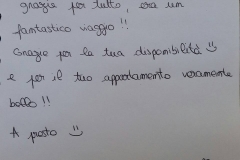 grazie per tutto, era un
fantastico viaggio !!
Grazie per la tua disponibilità ☺
e per il tuo appartamento veramente
bello !!
A presto ☺